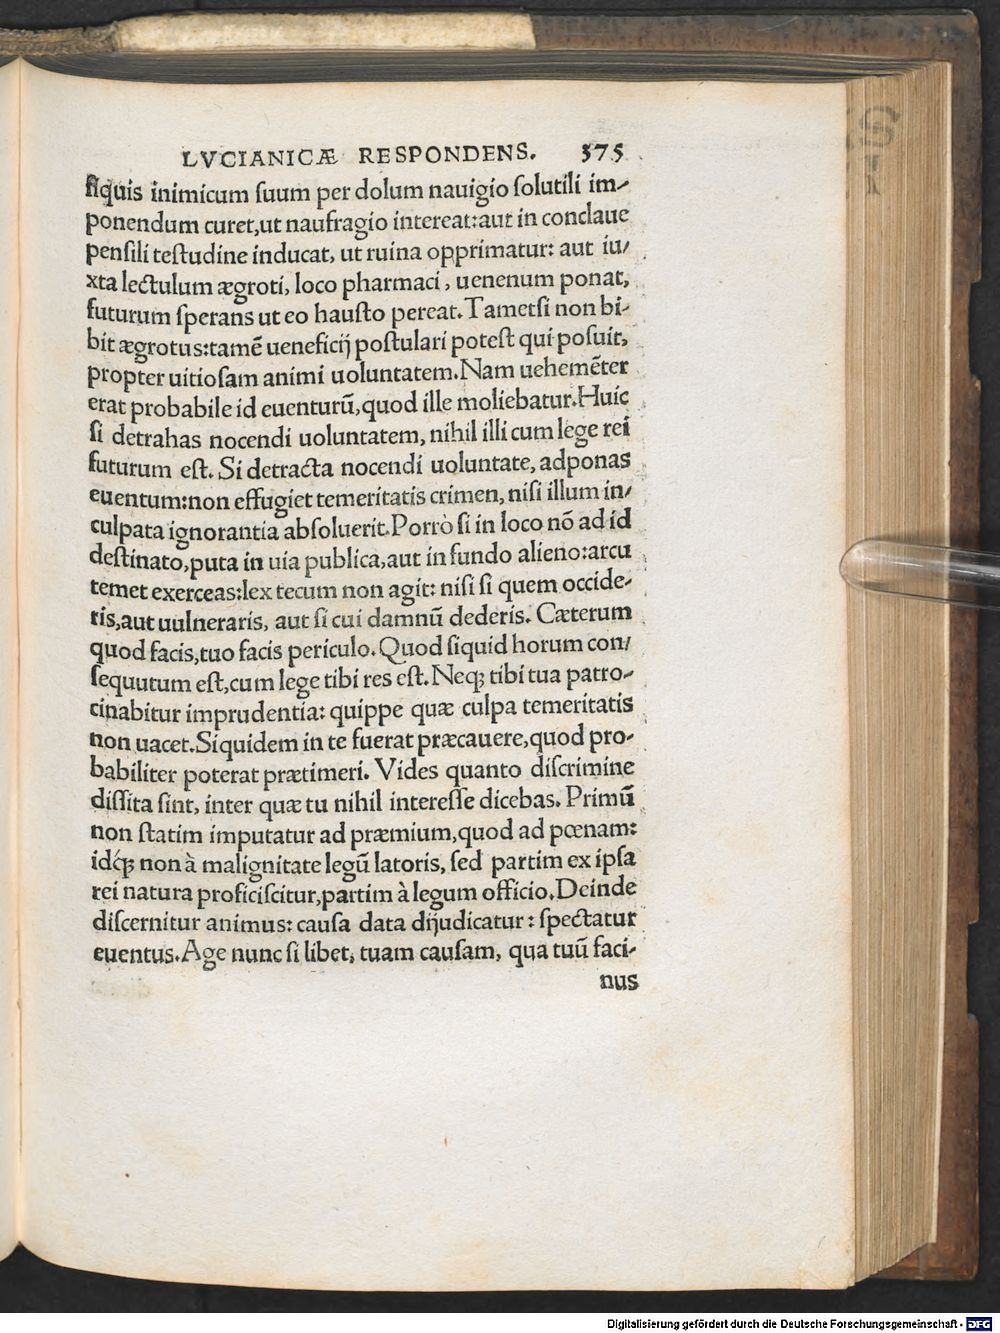 LVCIANICÆ RESPONDENS. 375
siquis inimicum suum per dolum nauigio solutili im-
ponendum curet,ut naufragio intereat:aut in conclaue
pensili testudine inducat, ut ruina opprimatur: aut iu/
xta lectulum ægroti, loco pharmaci, uenenum ponat,
futurum sperans ut eo hausto pereat.Tametsi non bi-
bit ægrotus:tamē ueneficij postulari potest qui posuit,
propter uitiosam animi uoluntatem.Nam uehemēter
erat probabile id euenturū,quod ille moliebatur.Huic
si detrahas nocendi uoluntatem, nihil illi cum lege rei
futurum est. Si detracta nocendi uoluntate, adponas
euentum:non effugiet temeritatis crimen, nisi illum in/
culpata ignorantia absoluerit.Porrò si in loco nō ad id
destinato,puta in uia publica,aut in fundo alieno:arcu
temet exerceas:lex tecum non agit: nisi si quem occide-
ris,aut uulneraris, aut si cui damnū dederis. Cæterum
quod facis,tuo facis periculo.Quod siquid horum con/
sequutum est,cum lege tibi res est.Neq; tibi tua patro-
cinabitur imprudentia: quippe quæ culpa temeritatis
non uacet.Siquidem in te fuerat præcauere,quod pro-
babiliter poterat prætimeri. Vides quanto discrimine
dissita sint, inter quæ tu nihil interesse dicebas. Primū
non statim imputatur ad præmium,quod ad pœnam:
idq́; non à malignitate legū latoris, sed partim ex ipsa
rei natura proficiscitur,partim à legum officio.Deinde
discernitur animus: causa data dijudicatur: spectatur
euentus.Age nunc si libet, tuam causam, qua tuū faci-
nus
Digitalisierung gefördert durch die Deutsche Forschungsgemeinschaft - DFG